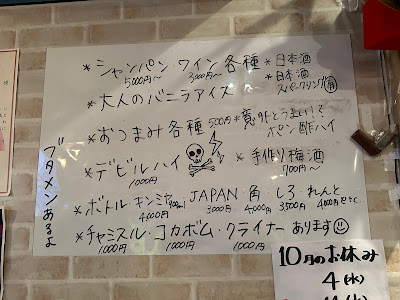 *シャンパン・ワイン各種
5000円〜 3000円〜
*日本酒
*日本酒
スパークリング有
*大人のバニラアイス
*おつまみ各種 500円
*意外とうまい!?
ポン酢ハイ
*デビルハイ
1000円
*手作り梅酒
700円〜
*ボトル・キンミヤ JAPAN 角・しろ・れんと
4000円 3000円 4000円 3500円 4000円 etc.
*チャミスル・コカボム・クライナー あります
1000円 1000円 1000円
ブタメンあるよ
10月のお休み
4(水)